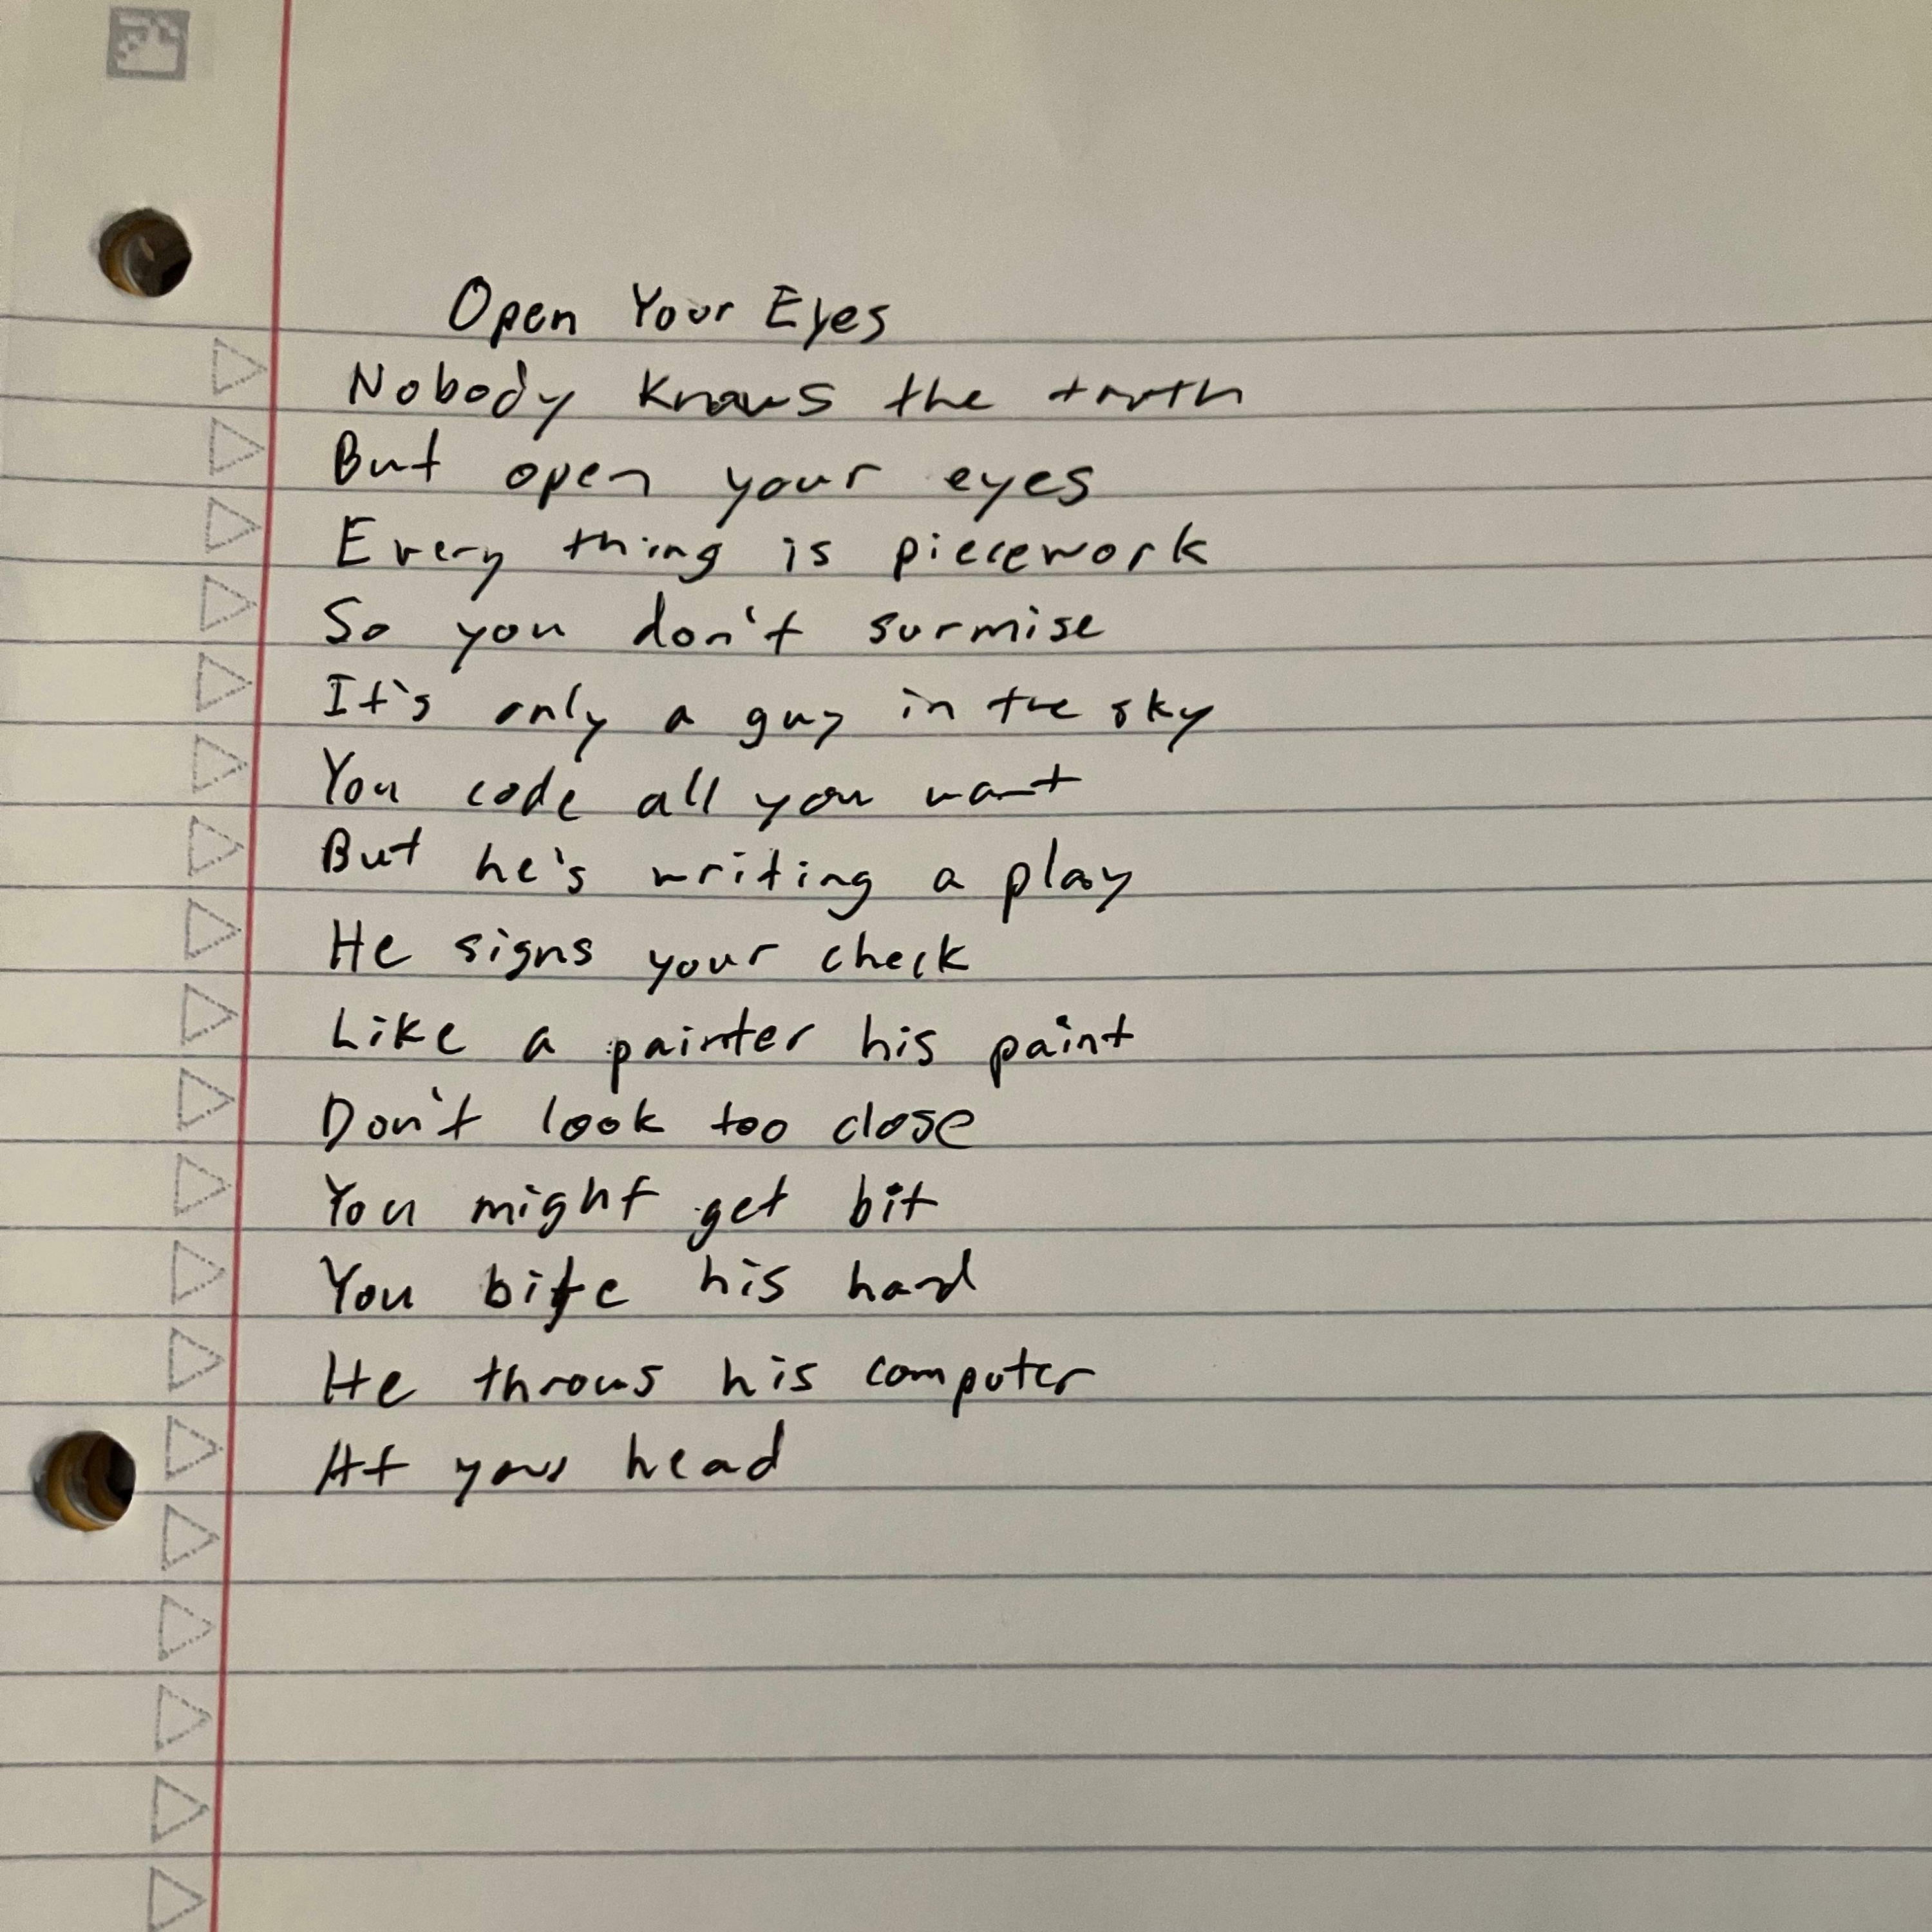 Open Your Eyes
Nobody knows the truth
But open your eyes
Every thing is piecework
So you don't surmise
It's only a guy in the sky
You code all you want
But he's writing a play
He signs your check
Like a painter his paint
Don't look too close
You might get bit
You bite his hand
He throws his computer
At your head